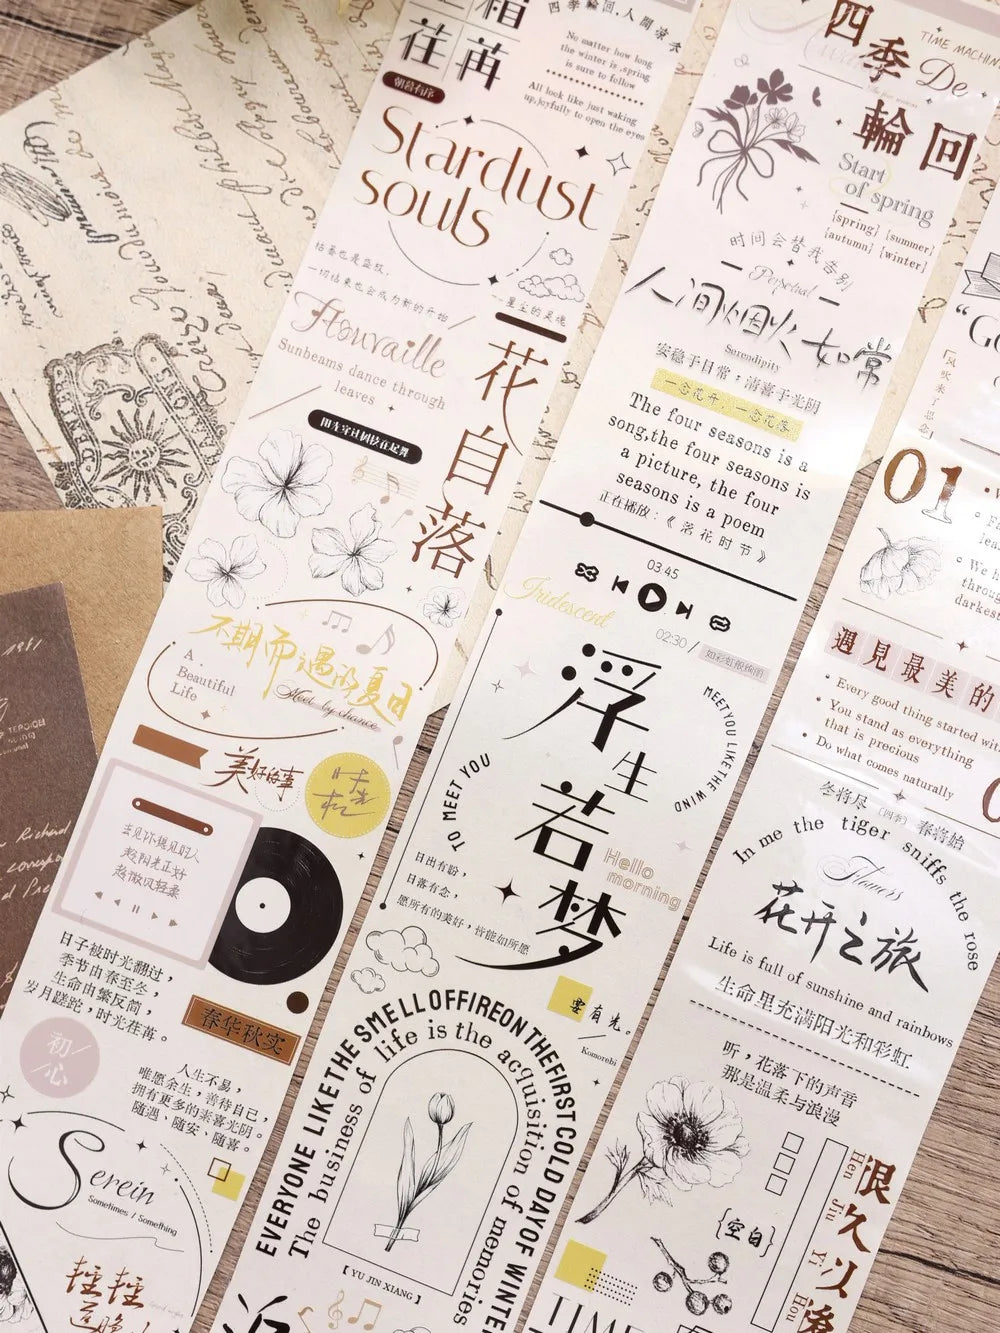 荏苒
朝暮有序
Stardust
souls
枯萎也是盛放,
一切结束也会成为新的开始
星尘的灵魂
四季輪回,人間
No matter how long
the winter is ,spring
is sure to follow
All look like just waking
up,joyfully to open the eyes
Sunbeams dance through
leaves
阳光穿过树枝在起舞
花自落
不期而遇的夏日
A
Beautiful
Life
Meet by chance
美好的事
日子被时光翻过,
季节由春至冬,
生命由繁反简,
岁月蹉跎,时光荏苒。
春华秋实
初心
人生不易,
唯愿余生,善待自己,
拥有更多的素喜光阴。
随遇、随安、随喜。
Serein
Sometimes / Something
四季 De
輪回
TIME MACHIN
Start
of spring
[spring] [summer]
[autumn] [winter]
时间会替我告别
Perpetual
人间烟火如常
Serendipity
安稳于日常,清喜于光阴
一念花开,一念花落
The four seasons is a
song,the four seasons is
a picture, the four
seasons is a poem
正在播放:《落花时节》
03:45
02:30 /
Iridescent
浮生若梦
MEETYOU LIKE THE WIND
TO MEET YOU
Hello
morning
日出有盼,
日落有念,
愿所有的美好,皆能如所愿
Komorebi
EVERYONE LIKE THE SMELL OF FIRE ON THE FIRST COLD DAY OF WINTER
The business of life is the acquisition of memories
【 YU JIN XIANG 】
「风吹来了思念」
01
遇見最美的
• Every good thing started with
• You stand as everything
that is precious
• Do what comes naturally
冬将尽 (四季) 春将始
In me the tiger sniffs the rose
Flowers
花开之旅
Life is full of sunshine and rainbows
生命里充满阳光和彩虹
听,花落下的声音
那是温柔与浪漫
{空白}
很久以
Hen Jiu Yi Hou
TIME